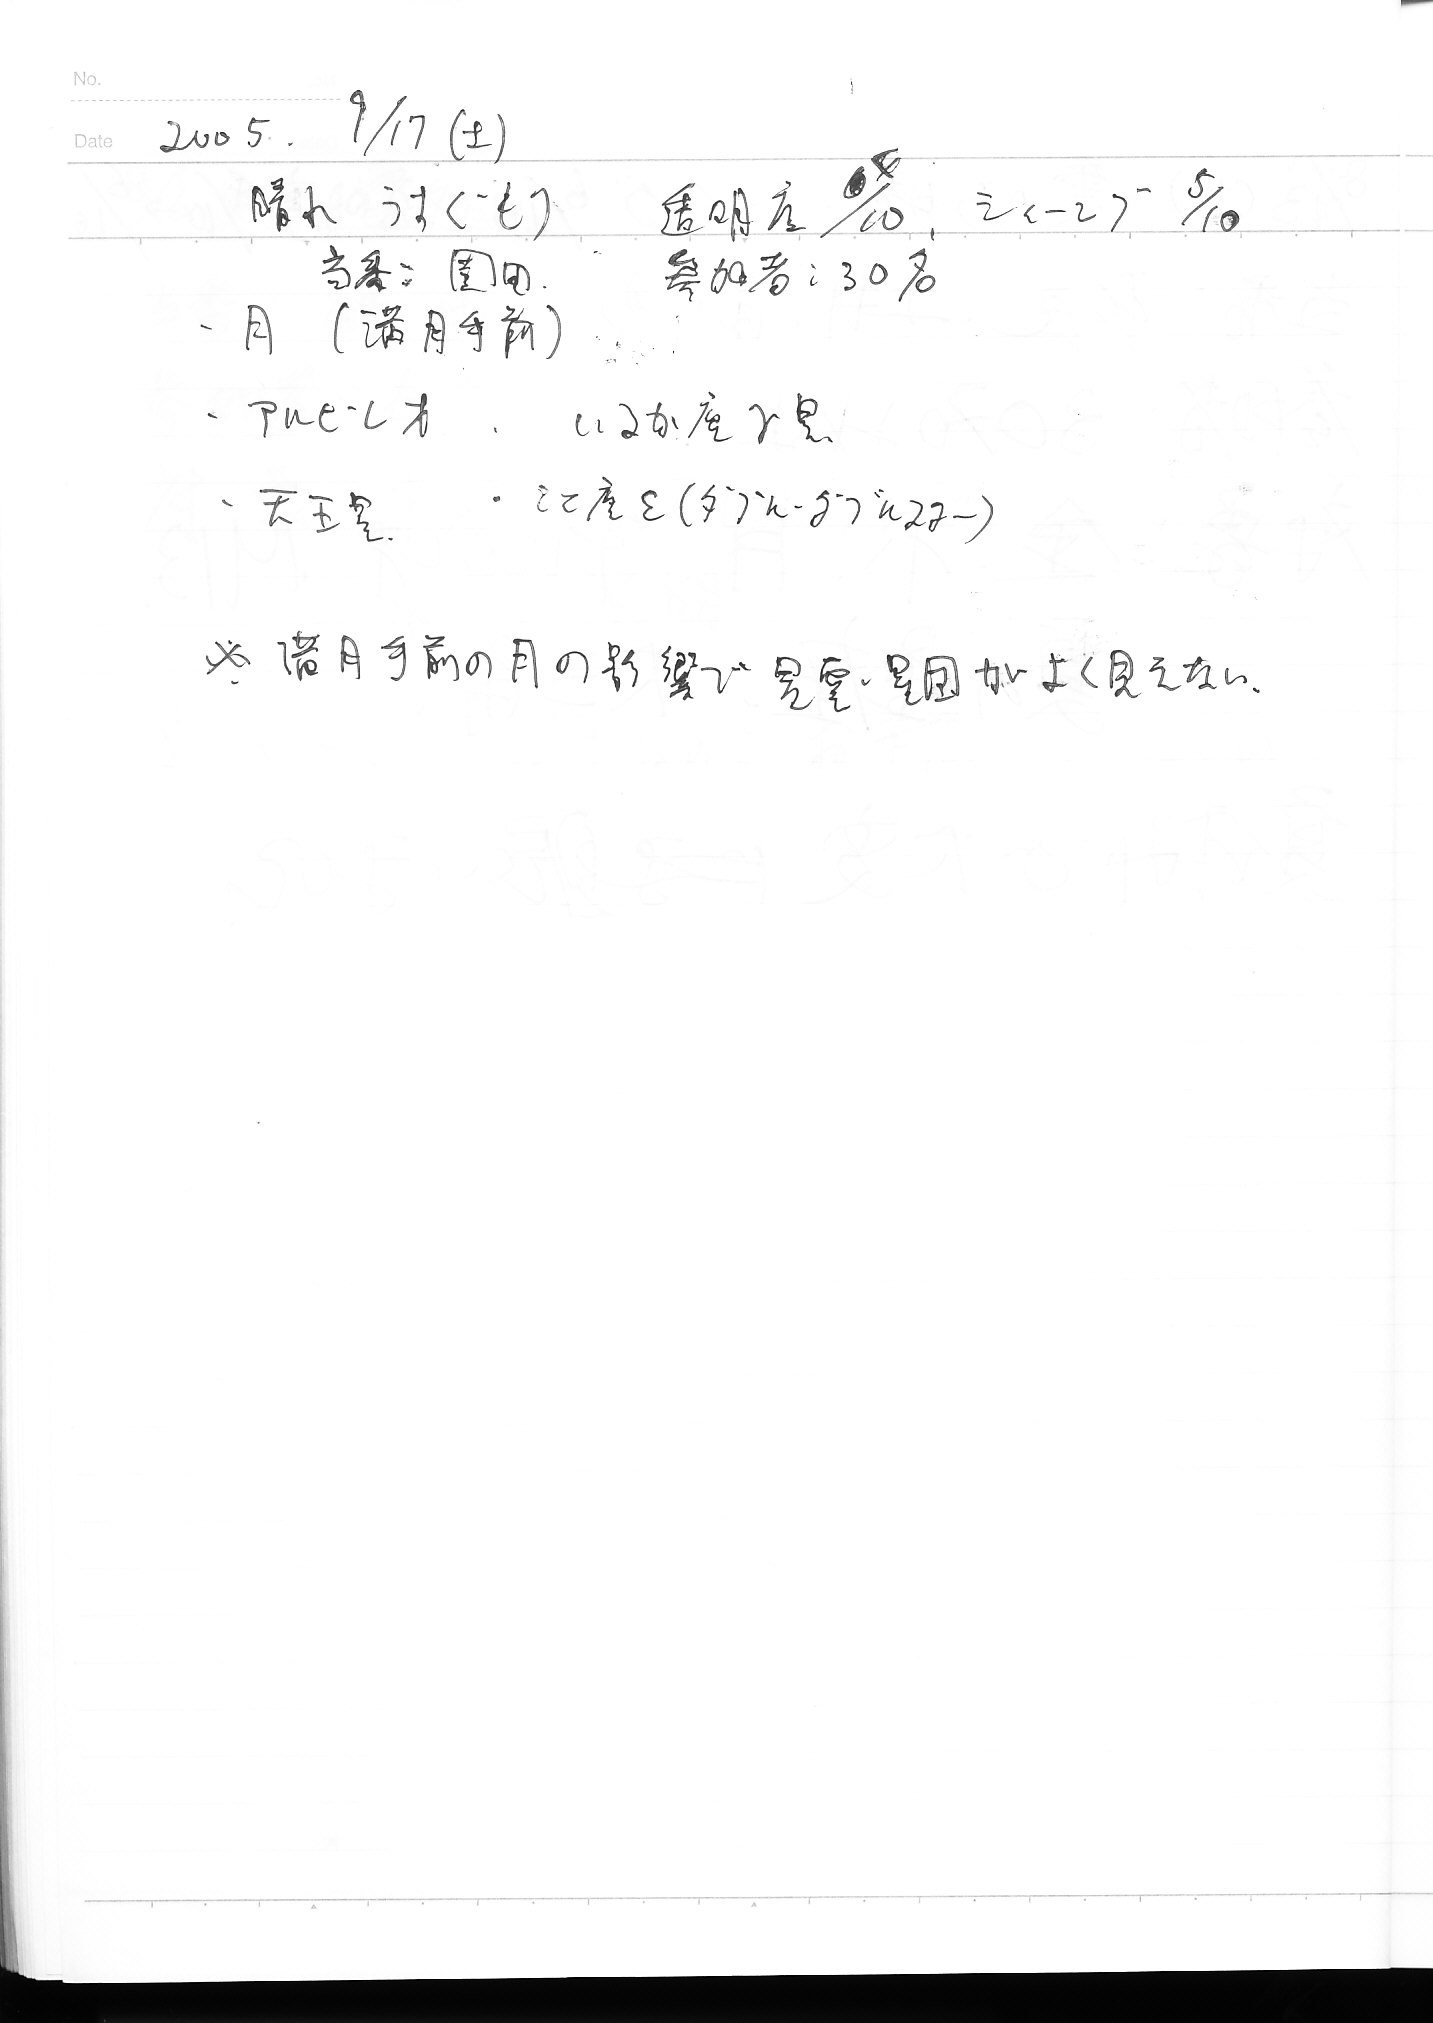 No.
Date 2005. 9/17 (土)
晴れ うすぐもり 透明度 /10, シーイング 5/10
当番: 園田. 参加者:30名
・月 (満月手前)
・アルビレオ ・いるか座γ星
・天王星. ・こと座ε(ダブル・ダブルスター)
※ 満月手前の月の影響で星雲・星団がよく見えない.